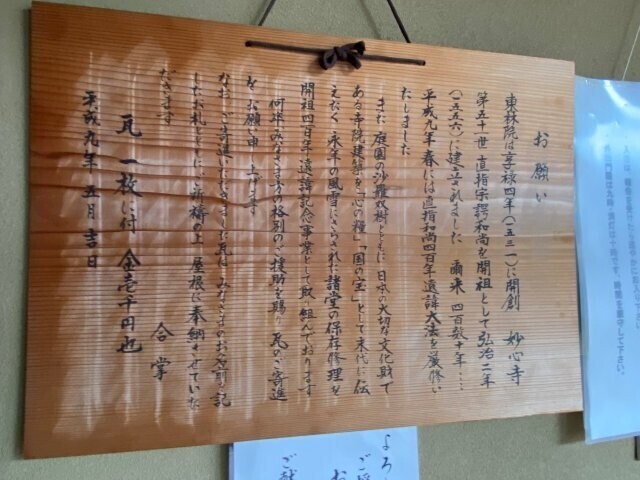 お願い
東林院は享禄四年(一五三一)に開創 妙心寺
第五十世 直指宗諤和尚を開祖として弘治二年
(一五五六)に建立されました 爾来 四百数十年……
平成九年春には直指和尚四百年遠諱大法を厳修い
たしました
また 庭園の沙羅双樹とともに 日本の大切な文化財で
ある寺院建築を「心の糧」「国の宝」として末代に伝
えたく 永年の風雪にさらされた諸堂の保存修理を
開祖四百年遠諱記念事業として取り組んでおります
何卒 みなさま方の格別のご援助を賜り 瓦のご寄進
をお願い申し上げます
なお ご寄進いただきました瓦は みなさまのお名前を記
したお札とともに、祈祷の上 屋根に奉納させていた
だきます
合掌
瓦 一枚に付 金壱千円也
平成九年 五月 吉日
よろ
お